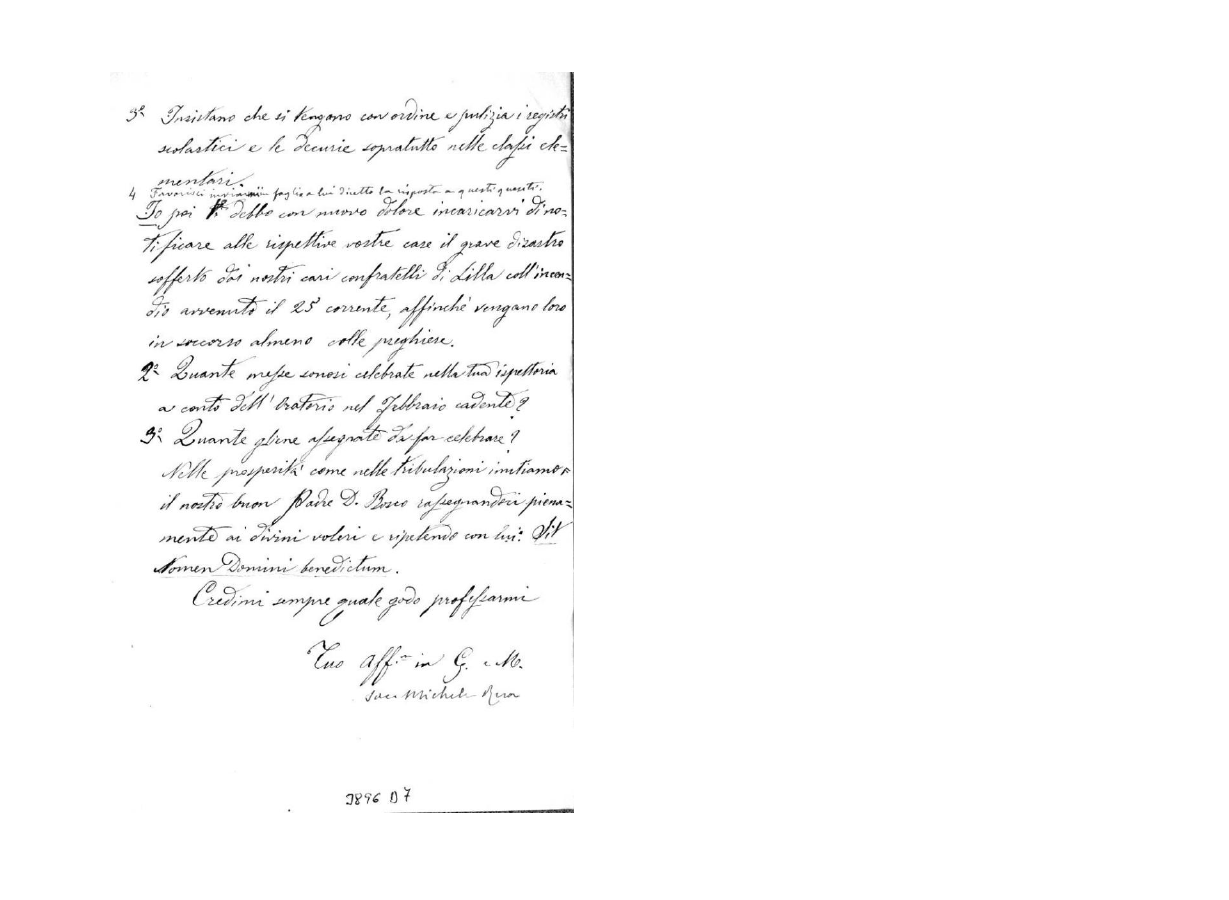 3º Insistano che si tengano con ordine e pulizia i registri
scolastici e le decurie sopratutto nelle classi ele=
mentari.
4 Favorisci inviare in foglio a lui diretto la risposta a questi quesiti.
Io poi debbo con nuovo dolore incaricarvi di no=
tificare alle rispettive vostre case il grave disastro
sofferto dai nostri cari confratelli di Lilla coll'incen=
dio avvenuto il 25 corrente, affinché vengano loro
in soccorso almeno colle preghiere.
2º Quante messe sonosi celebrate nella tua ispettoria
a conto dell'Oratorio nel Febbraio cadente?
3º Quante assegnate da far celebrare?
Nelle prosperità come nelle tribulazioni imitiamo
il nostro buon Padre D. Bosco rassegnandoci piena=
mente ai divini voleri e ripetendo con lui: Sit
Nomen Domini benedictum.
Credimi sempre quale godo professarmi
Tuo Aff.mo in G. e M.
Sac. Michele Rua
3896 D7